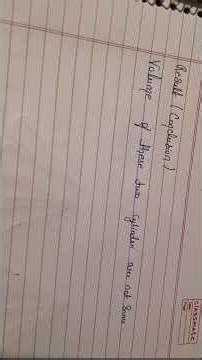 classmate
Result (Conclusion)
Volume of these two cylinder are not same